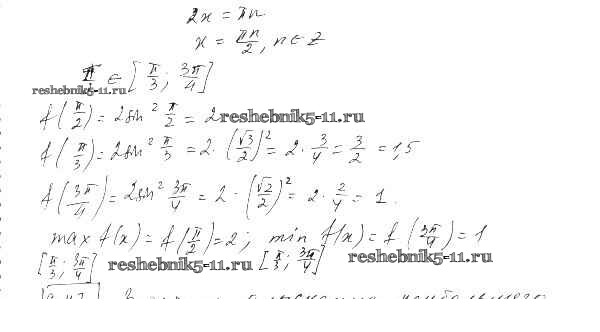 2x = πn
x = πn/2, n ∈ Z
π/2 ∈ [π/3; 3π/4]
reshebnik5-11.ru
f(π/2) = 2sin² π/2 = 2 reshebnik5-11.ru
f(π/3) = 2sin² π/3 = 2·(√3/2)² = 2·3/4 = 3/2 = 1,5
f(3π/4) = 2sin² 3π/4 = 2·(√2/2)² = 2·2/4 = 1.
max f(x) = f(π/2) = 2; min f(x) = f(3π/4) = 1
[π/3; 3π/4] reshebnik5-11.ru [π/3; 3π/4] reshebnik5-11.ru